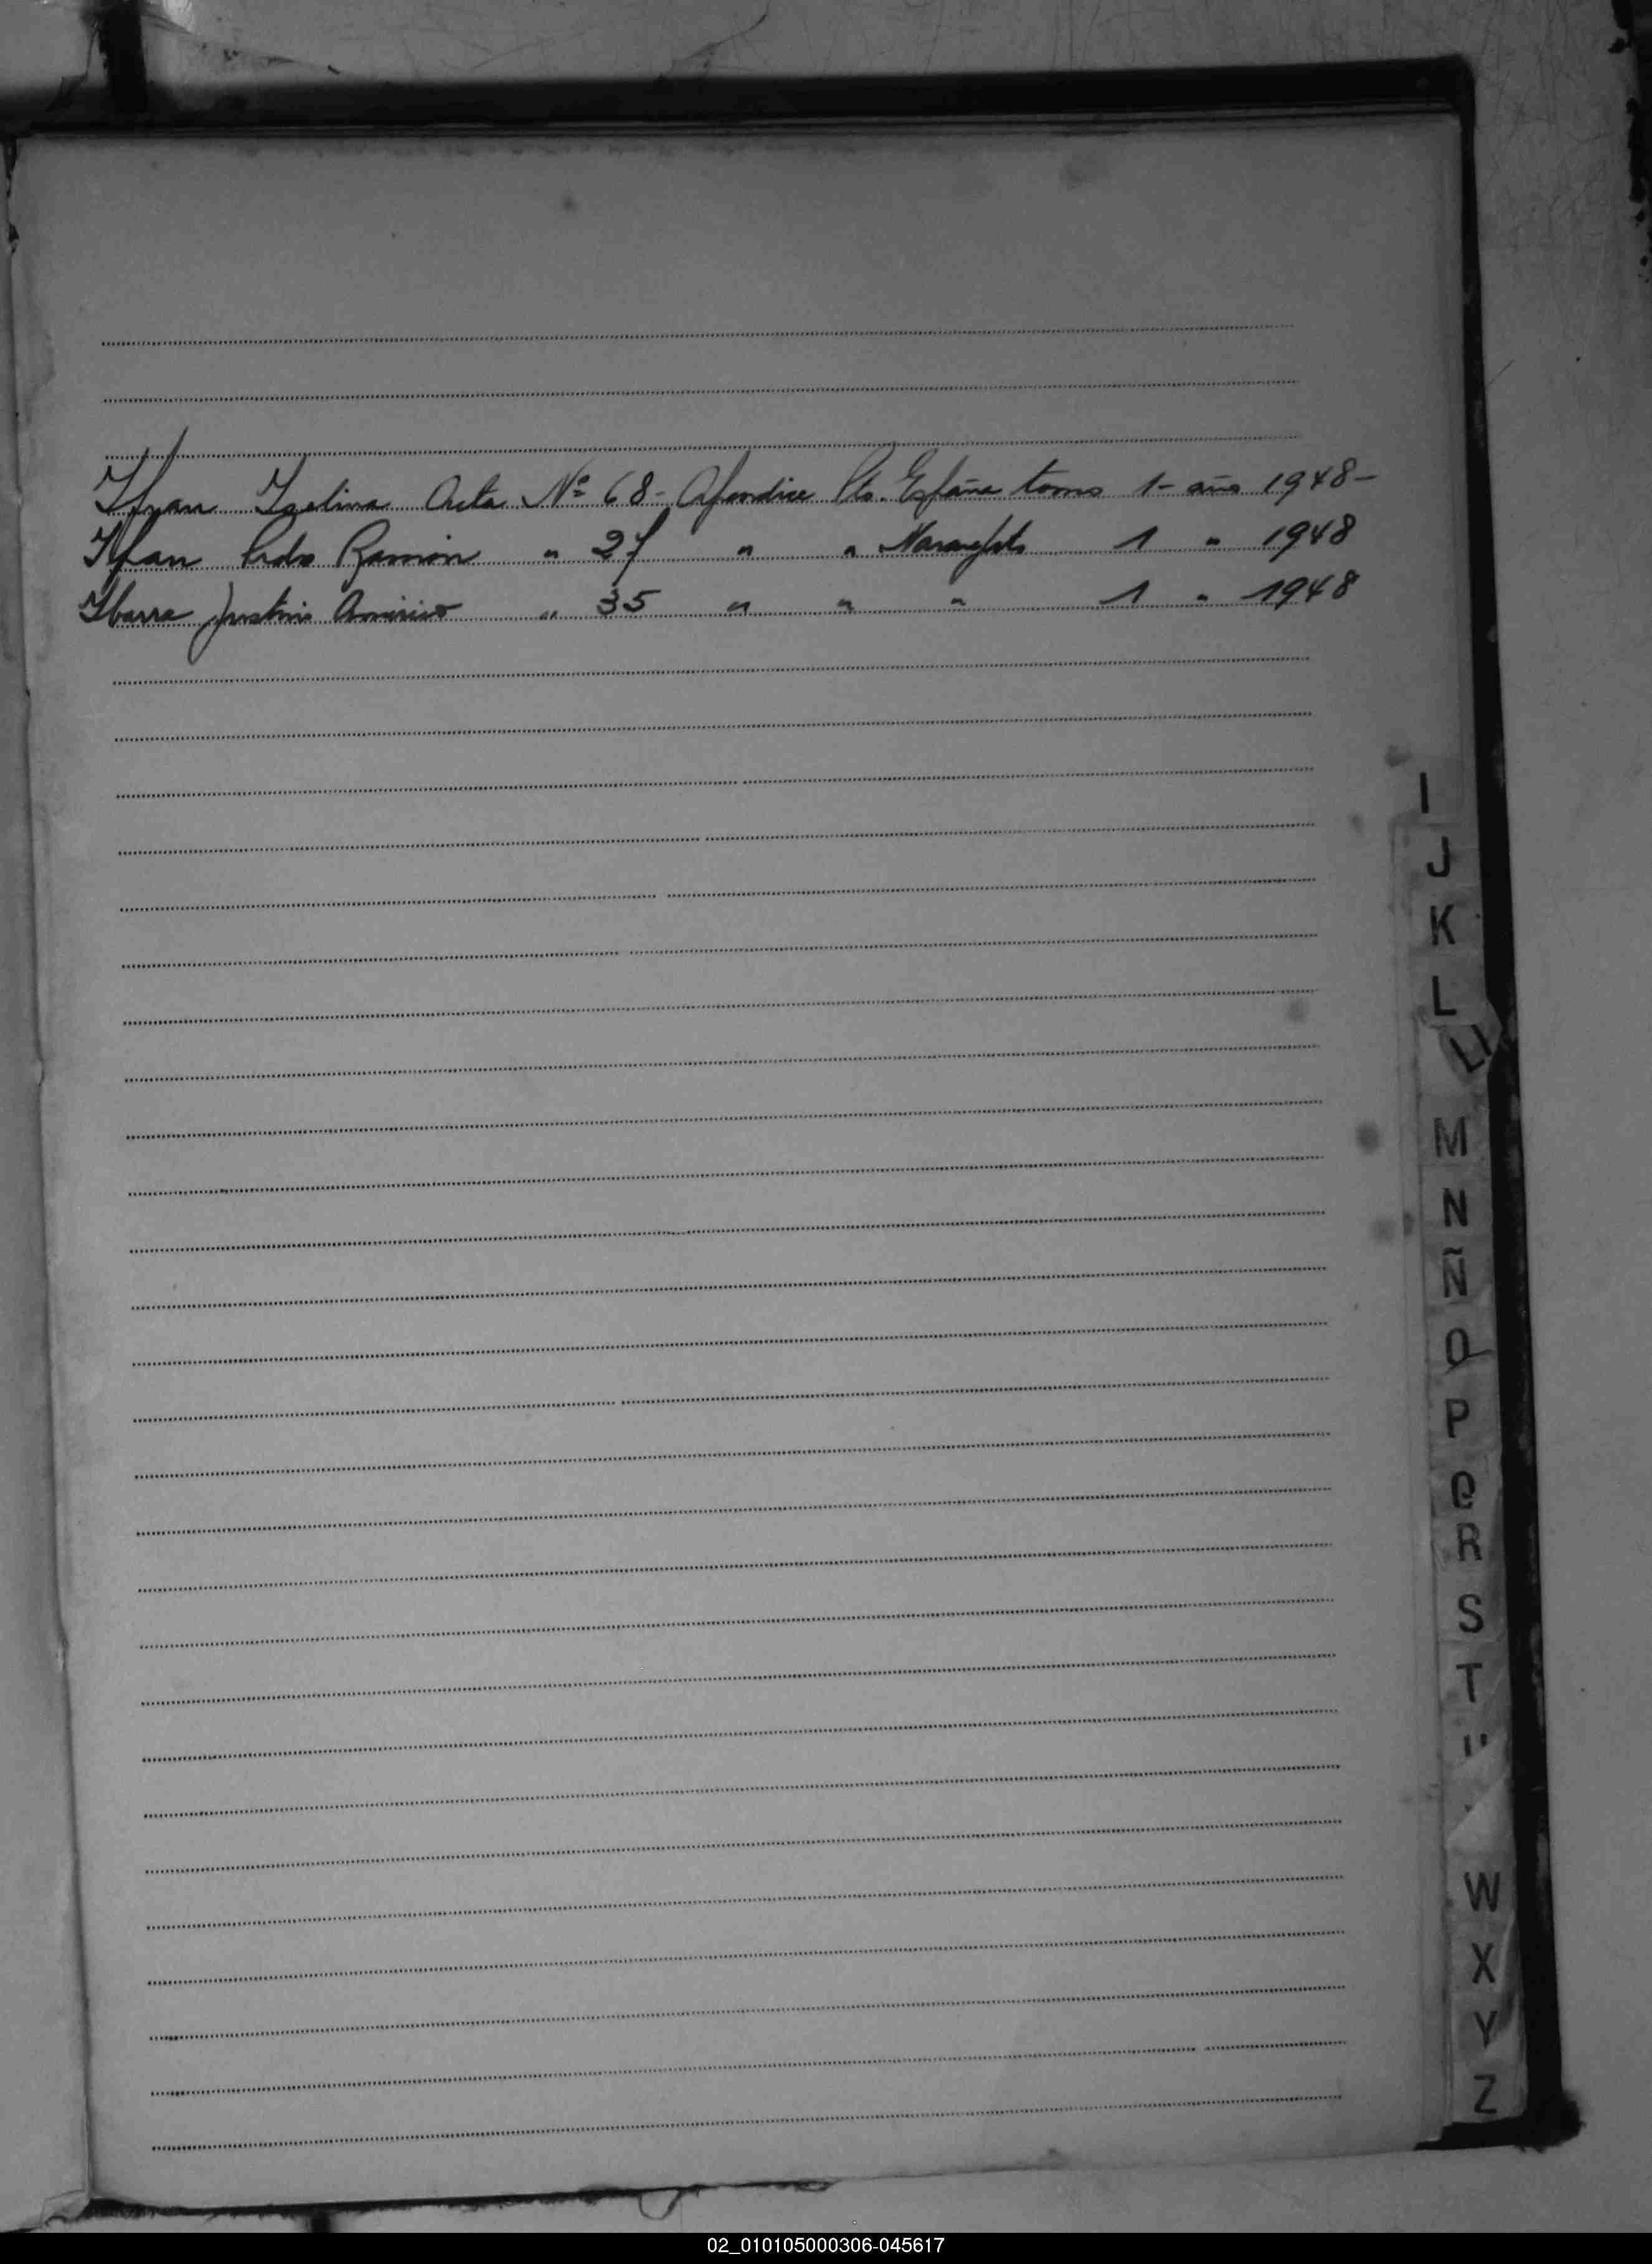 Ifran Izelina Acta Nº 68- Apendice Pto. España tomo 1- año 1948-
Ifran Ramón " 27 " " Naranjito 1 " 1948
Ibarra Justino Americo " 35 " " " 1 " 1948
I
J
K
L
Ll
M
N
Ñ
O
P
Q
R
S
T
U
W
X
Y
Z
02_010105000306-045617